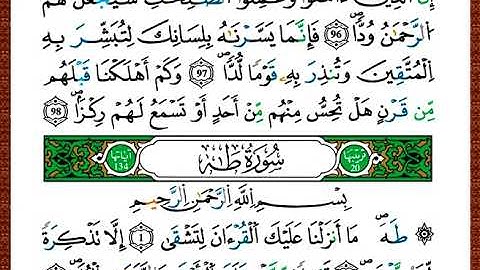 إِنَّ الَّذِينَ ءَامَنُوا وَعَمِلُوا الصَّٰلِحَٰتِ سَيَجْعَلُ لَهُمُ
الرَّحْمَٰنُ وُدًّا 96 فَإِنَّمَا يَسَّرْنَٰهُ بِلِسَانِكَ لِتُبَشِّرَ بِهِ
الْمُتَّقِينَ وَتُنذِرَ بِهِۦ قَوْمًا لُّدًّا 97 وَكَمْ أَهْلَكْنَا قَبْلَهُم
مِّن قَرْنٍ هَلْ تُحِسُّ مِنْهُم مِّنْ أَحَدٍ أَوْ تَسْمَعُ لَهُمْ رِكْزًا 98
ترتيبها 20 سُورَةُ طَٰهَ آياتها 134
بِسْمِ اللَّهِ الرَّحْمَٰنِ الرَّحِيمِ
طَهَ مَا أَنزَلْنَا عَلَيْكَ الْقُرْءَانَ لِتَشْقَىٰ 1 إِلَّا تَذْكِرَةً